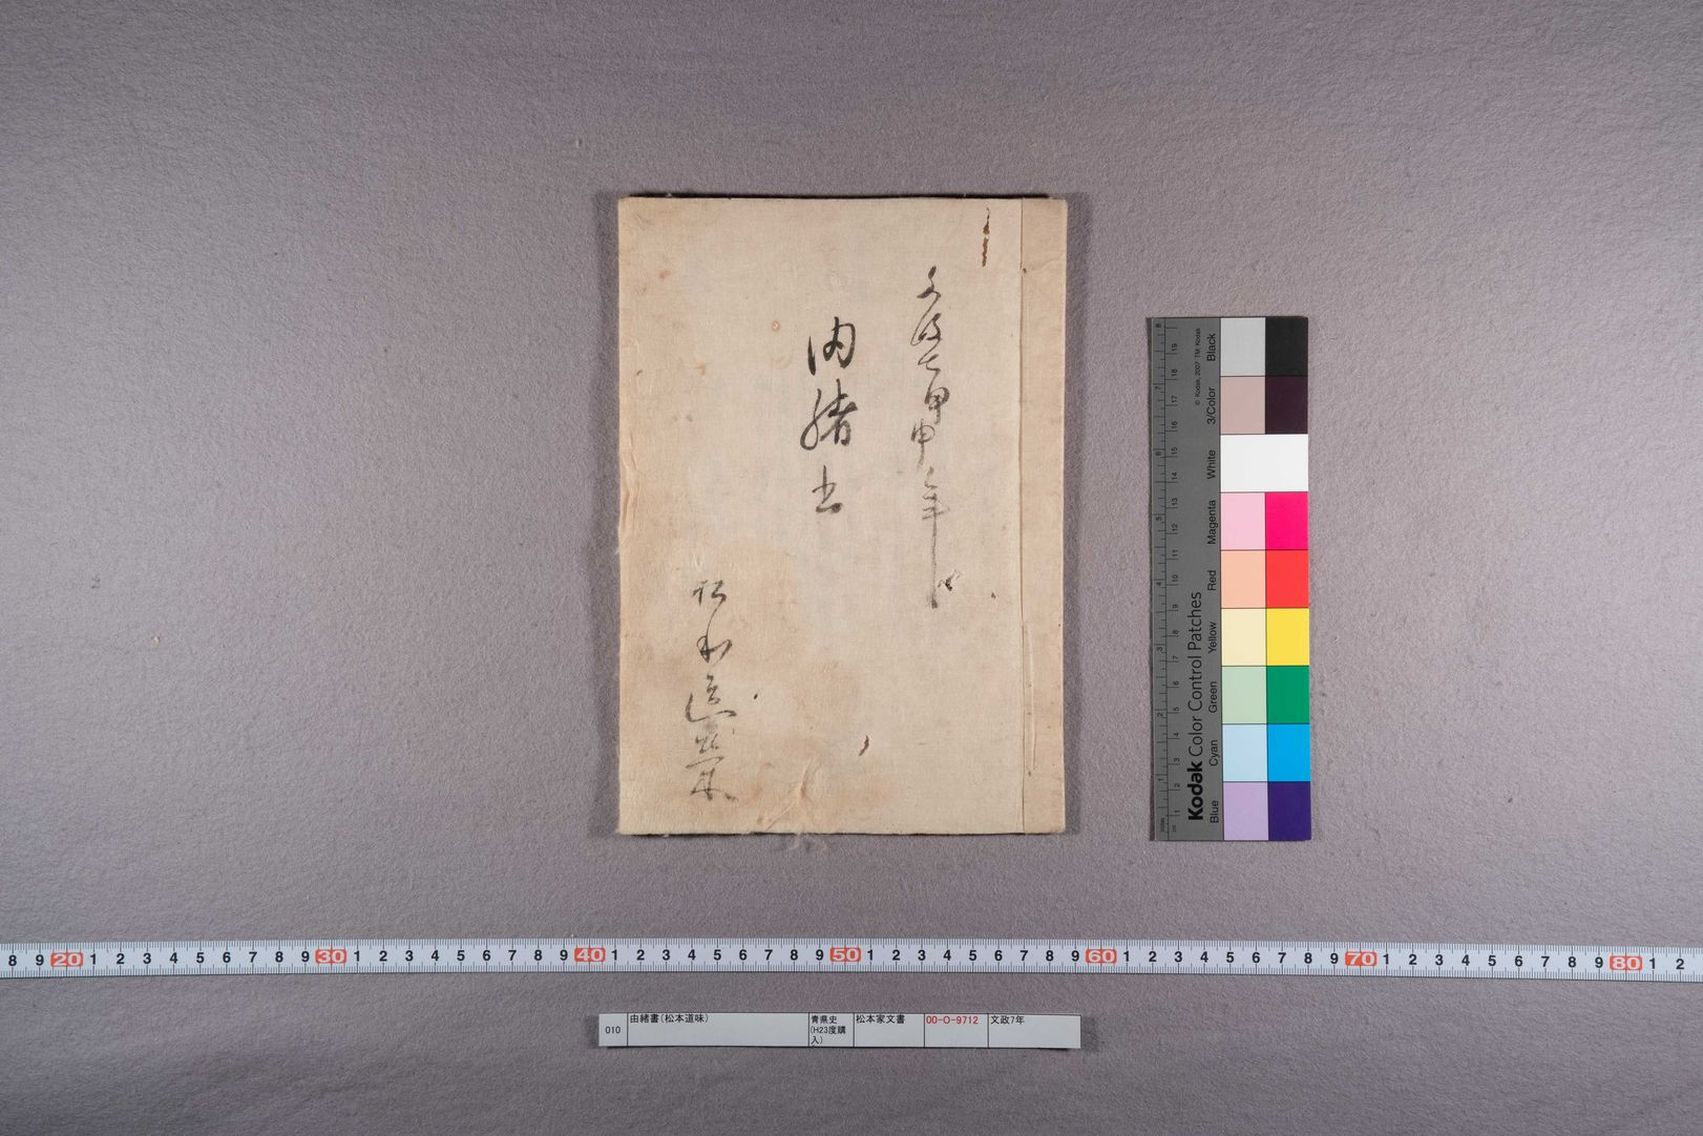 文政七甲申年
由緒書
松本
© Kodak, 2007 TM: Kodak
Kodak Color Control Patches
Blue Cyan Green Yellow Red Magenta White 3/Color Black
8 9 20 1 2 3 4 5 6 7 8 9 30 1 2 3 4 5 6 7 8 9 40 1 2 3 4 5 6 7 8 9 50 1 2 3 4 5 6 7 8 9 60 1 2 3 4 5 6 7 8 9 70 1 2 3 4 5 6 7 8 9 80 1 2
010 由緒書(松本道味) 青県史(H23度購入) 松本家文書 00-O-9712 文政7年